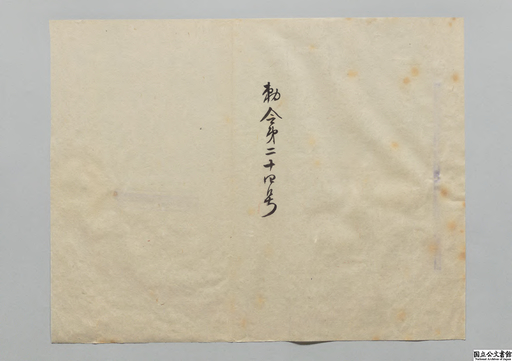 勅令第二十四号
国立公文書館
National Archives of Japan